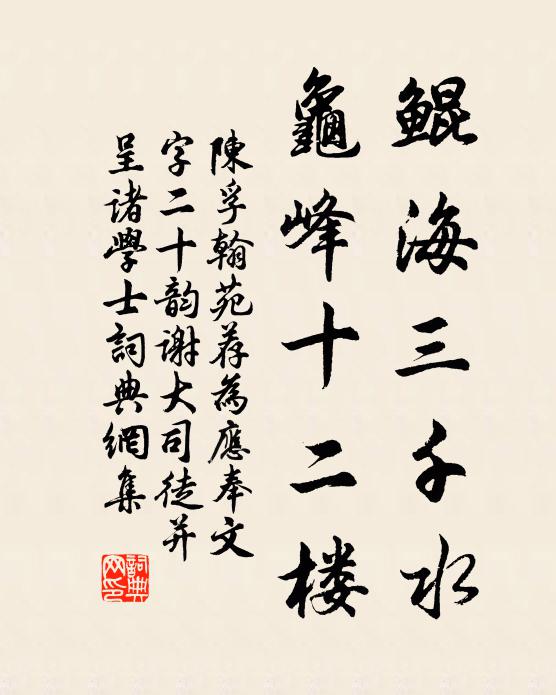 鯤海三千水
龜峰十二楼
陳孚翰苑荐為應奉文
字二十韵謝大司徒并
呈诸學士詞典網集
詞典网印